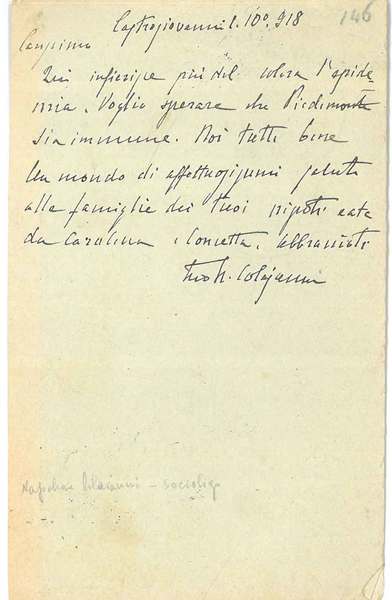 146
Castrogiovanni 1. 10º. 918
Carissimo
Qui infierisce più del colera l'epide
mia. Voglio sperare che Piedimonte
sia immune. Noi tutti bene
Un mondo di affettuosissimi saluti
alle famiglie dei tuoi nipoti e a te
da Carolina, Concetta. Abbracciati
tuo N. Colajanni
Napoleone Colajanni - sociologo